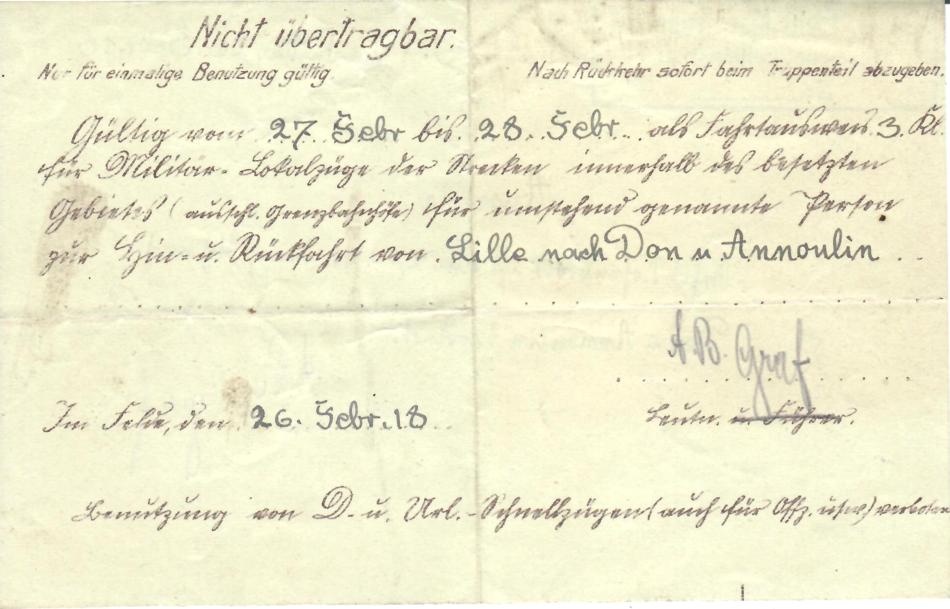 Nicht übertragbar.
Nur für einmalige Benutzung gültig. Nach Rückkehr sofort beim Truppenteil abzugeben.
Gültig vom 27. Febr bis 28. Febr. als Fahrtausweis 3. Kl.
für Militär-Lokalzüge der Strecken innerhalb des besetzten
Gebietes (ausschl. Grenzbahnhöfe) für umstehend genannte Person
zur Hin- u. Rückfahrt von Lille nach Don u. Annoulin
A. B. Graf
Im Felde, den 26. Febr. 18
Leutn. u. Führer.
Benutzung von D- u. Url.-Schnellzügen (auch für Offz. usw) verboten